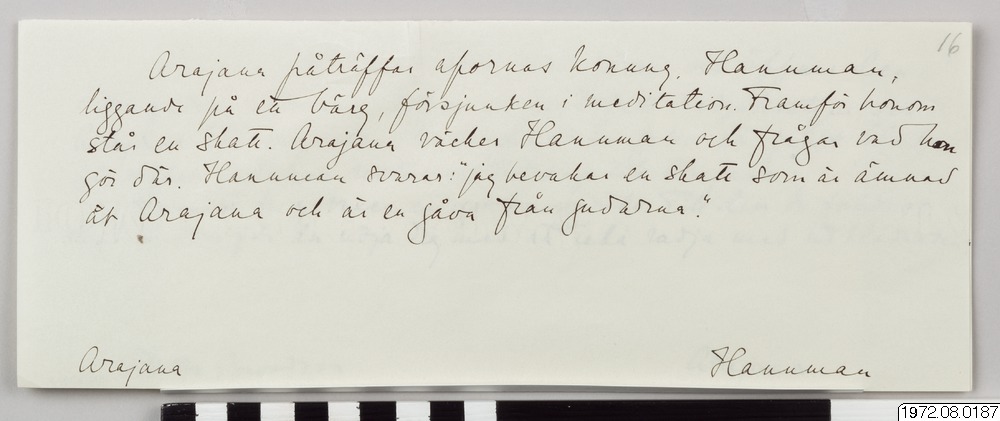 16
Arajana påträffar apornas konung, Hanuman,
liggande på ett bärg, försjunken i meditation. Framför honom
står en skatt. Arajana väcker Hanuman och frågar vad han
gör där. Hanuman svarar: "jag bevakar en skatt som är ämnad
åt Arajana och är en gåva från gudarna."
Arajana Hanuman
1972.08.0187